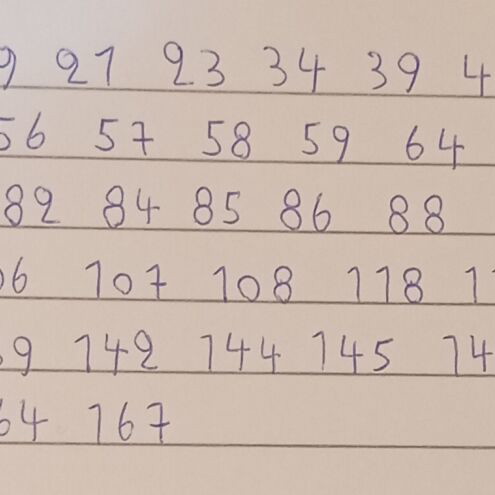 9 21 23 34 39 4
56 57 58 59 64
82 84 85 86 88
06 107 108 118 11
39 142 144 145 14
64 167